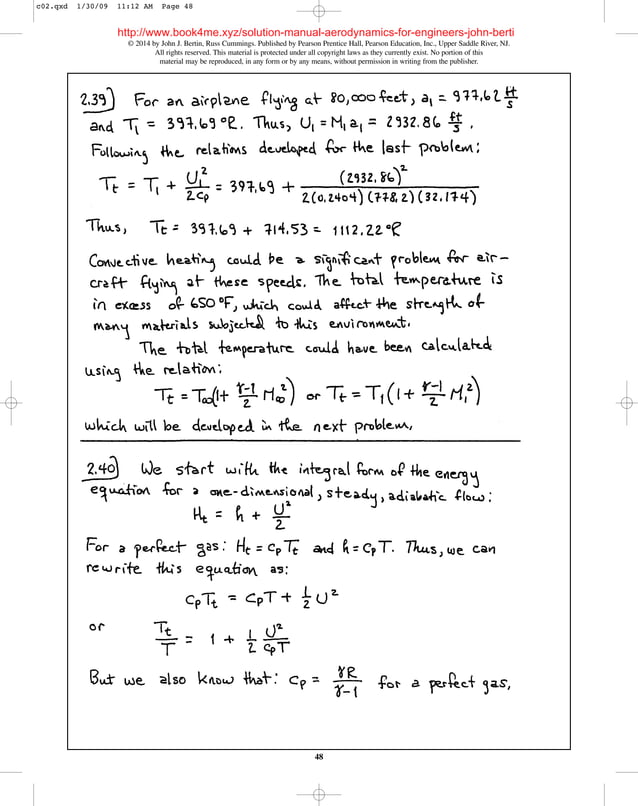 c02.qxd 1/30/09 11:12 AM Page 48
http://www.book4me.xyz/solution-manual-aerodynamics-for-engineers-john-berti
© 2014 by John J. Bertin, Russ Cummings. Published by Pearson Prentice Hall, Pearson Education, Inc., Upper Saddle River, NJ.
All rights reserved. This material is protected under all copyright laws as they currently exist. No portion of this
material may be reproduced, in any form or by any means, without permission in writing from the publisher.
2.39) For an airplane flying at 80,000 feet, a₁ = 977.62 ft/s
and T₁ = 397.69 °R. Thus, U₁ = M₁a₁ = 2932.86 ft/s.
Following the relations developed for the last problem:
Tt = T₁ + U₁²/2cp = 397.69 + (2932.86)²/2(0.2404)(778.2)(32.174)
Thus, Tt = 397.69 + 714.53 = 1112.22 °R
Convective heating could be a significant problem for air-
craft flying at these speeds. The total temperature is
in excess of 650 °F, which could affect the strength of
many materials subjected to this environment.
The total temperature could have been calculated
using the relation:
Tt = T∞(1 + γ-1/2 M∞²) or Tt = T₁(1 + γ-1/2 M₁²)
which will be developed in the next problem.
2.40) We start with the integral form of the energy
equation for a one-dimensional, steady, adiabatic flow:
Ht = h + U²/2
For a perfect gas: Ht = cpTt and h = cpT. Thus, we can
rewrite this equation as:
cpTt = cpT + 1/2 U²
or Tt/T = 1 + 1/2 U²/cpT
But we also know that: cp = γR/γ-1 for a perfect gas,
48